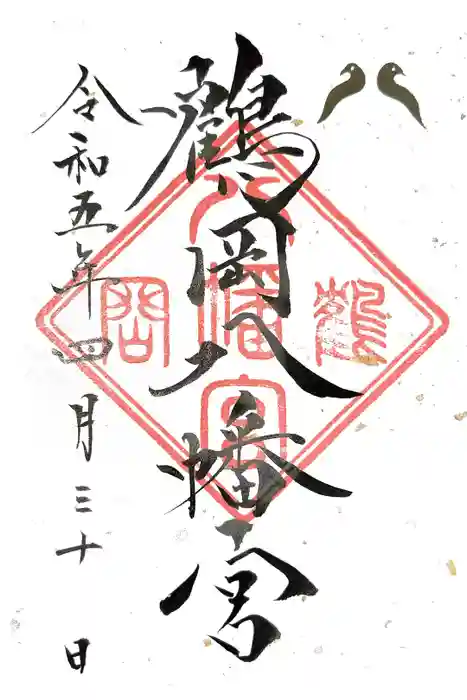 鶴岡八幡宮
令和五年四月三十日
鶴岡
八幡宮